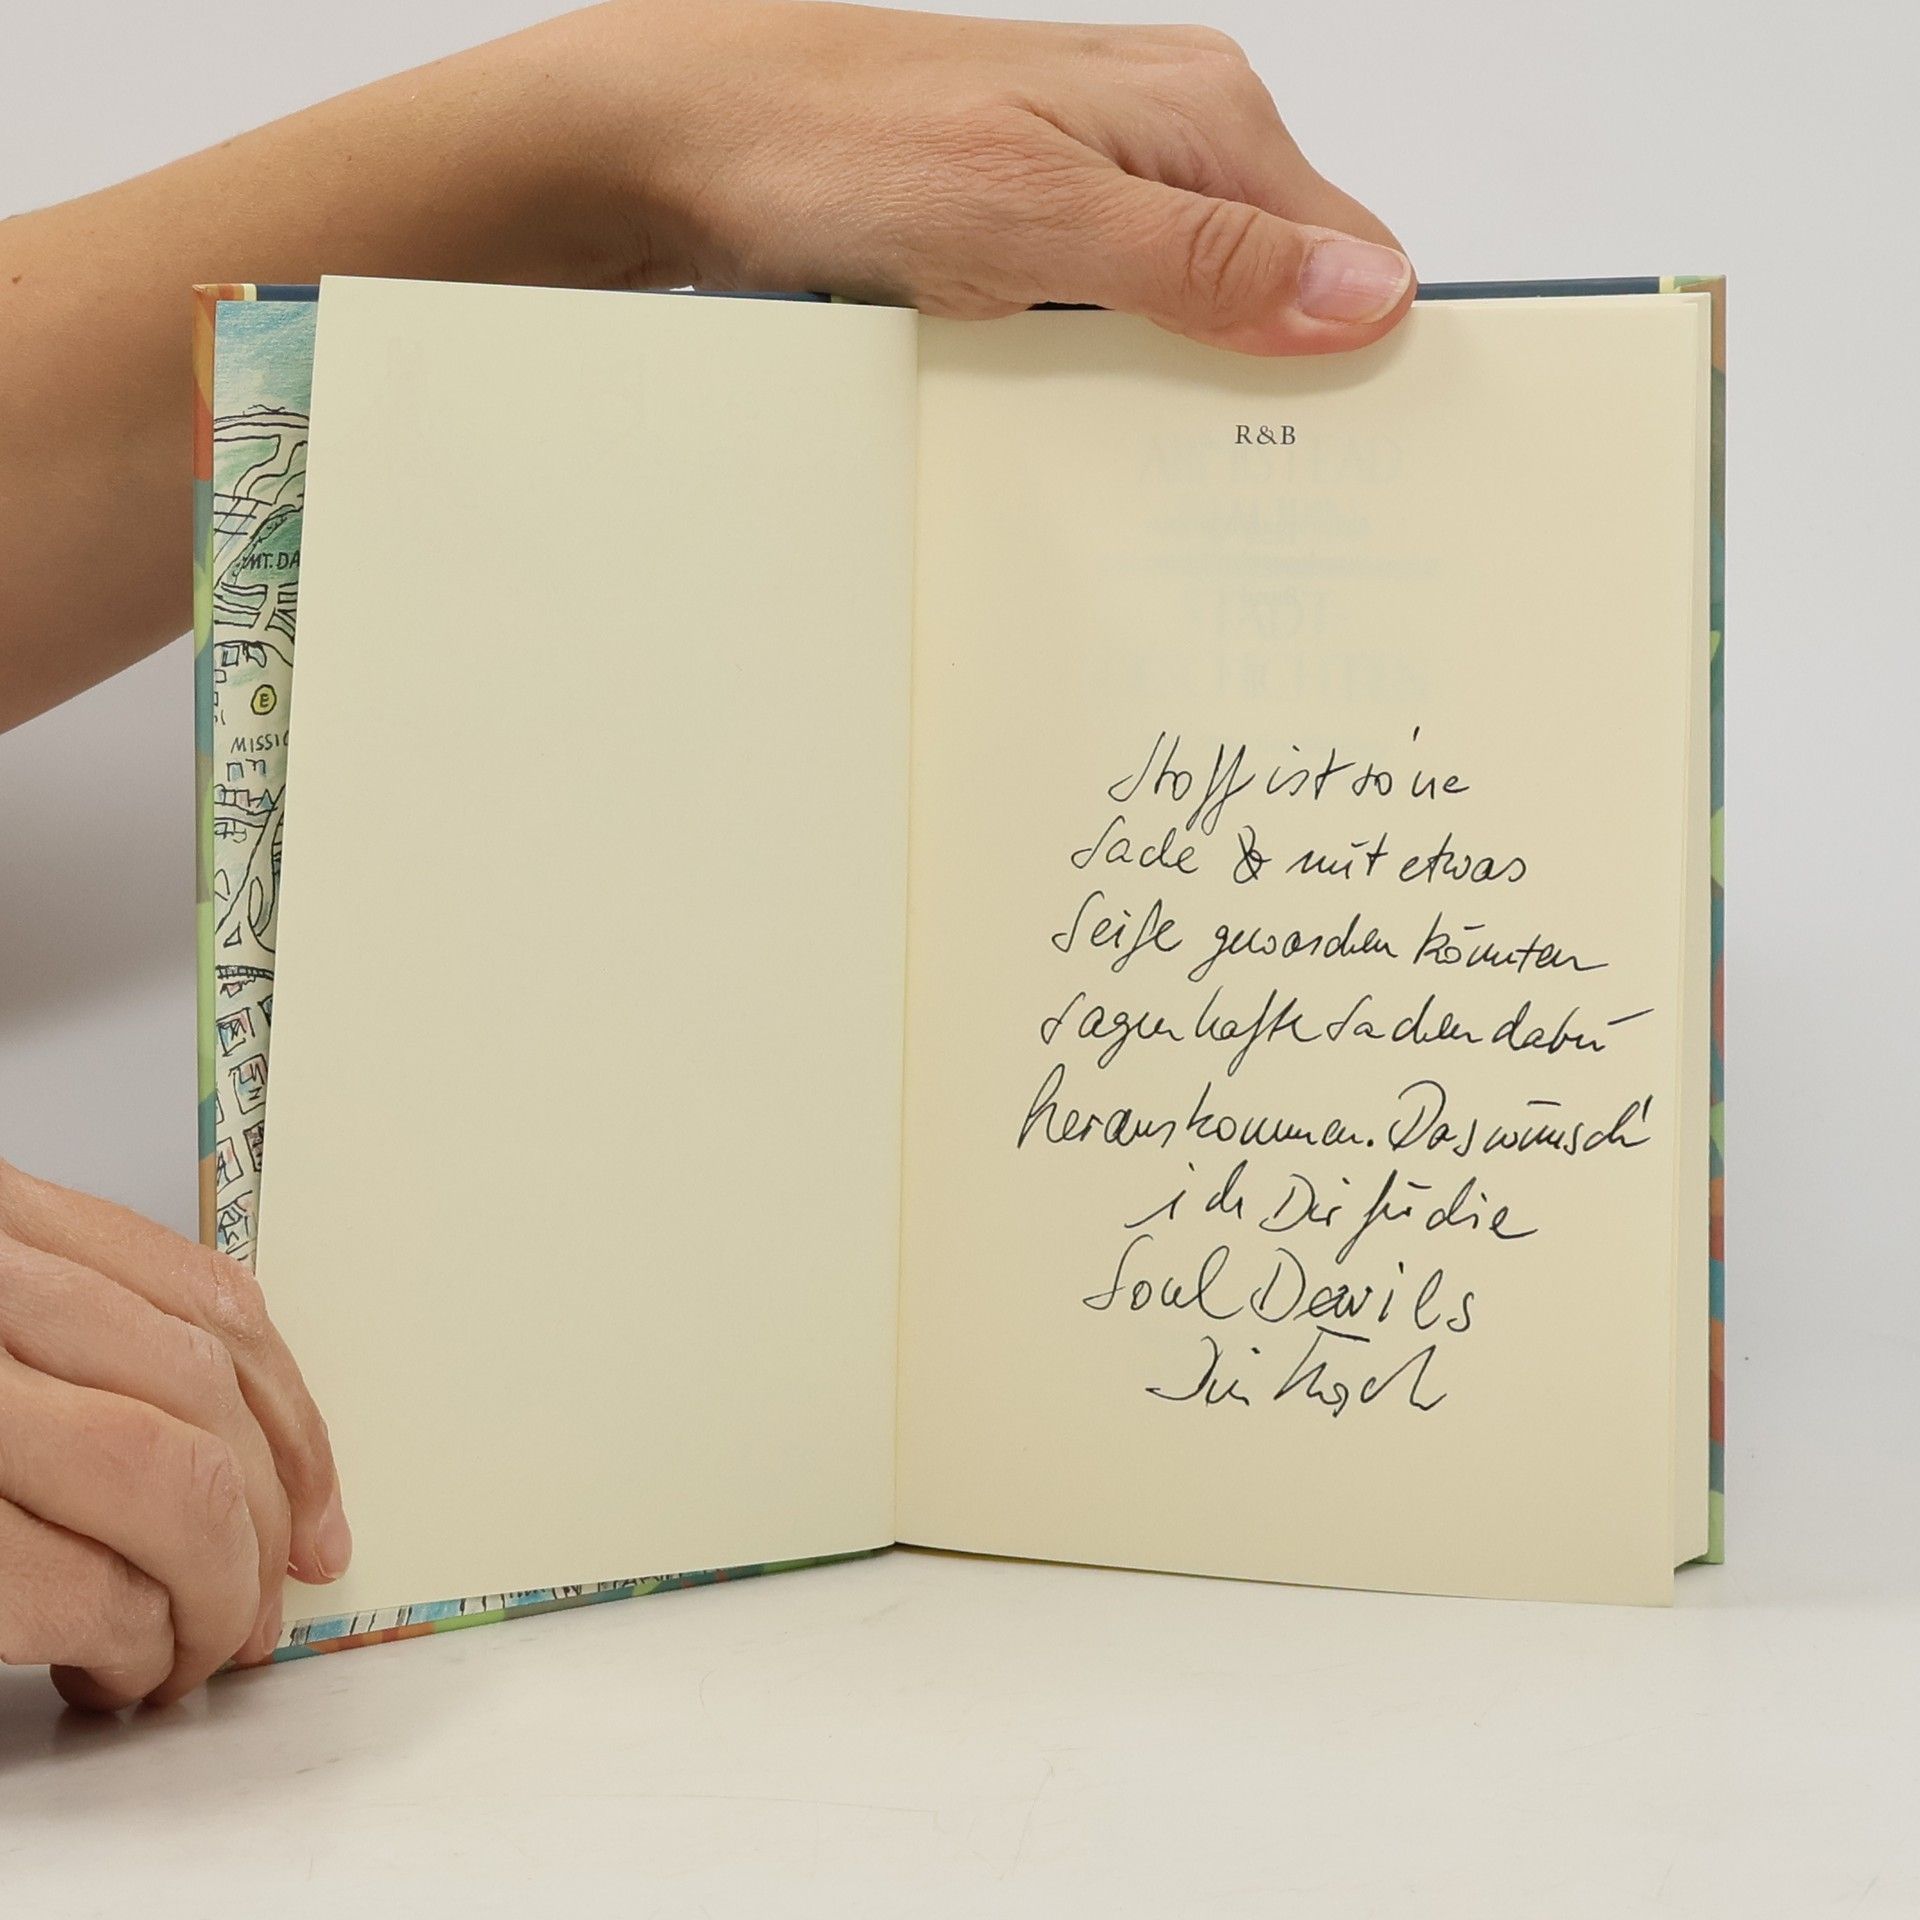 MT. DA
E
MISSIO
R&B
Stoff ist so 'ne
Sache & mit etwas
Seife gewaschen könnten
sagenhafte Sachen dabei
herauskommen. Das wünsch'
ich Dir für die
Soul Devils
Dein